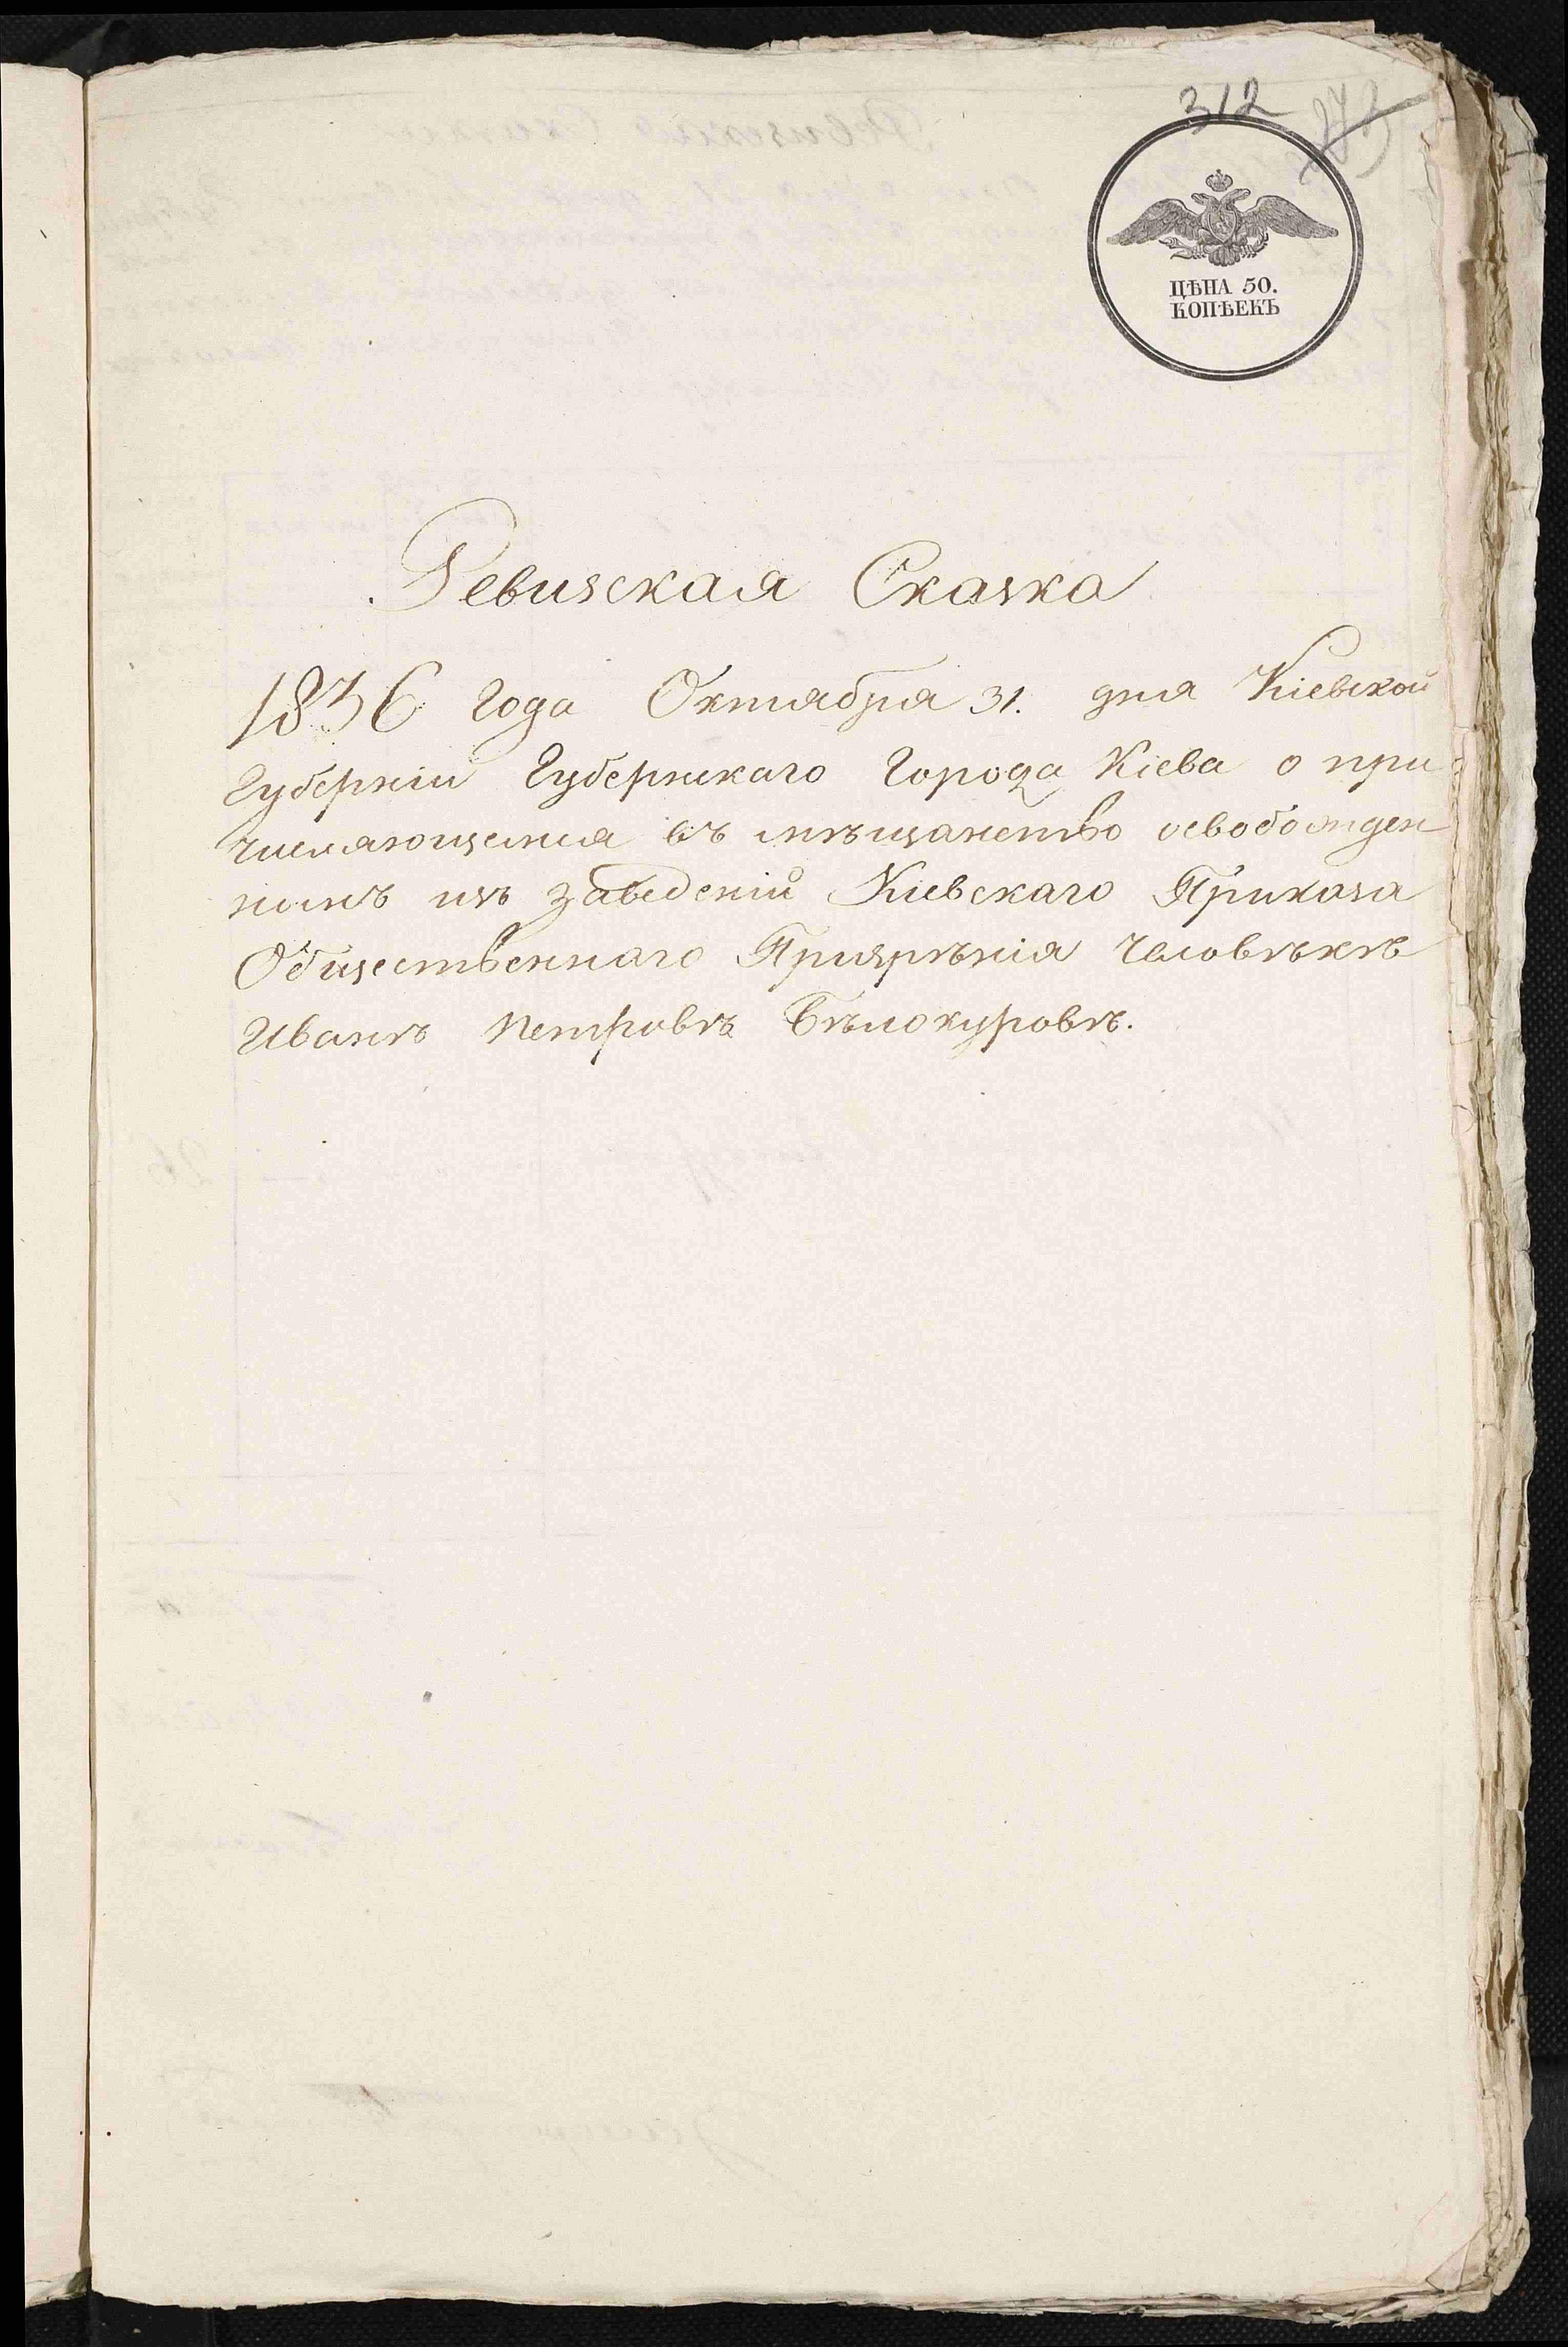 312
ЦѢНА 50.
КОПѢЕКЪ
Ревизская Сказка
1836 года Октября 31. дня Кіевской
Губерніи Губернскаго Города Кіева о при
числяющемся въ мѣщанство освобожден
номъ изъ заведеній Кіевскаго Приказа
Общественнаго Призрѣнія человѣкѣ
Иванѣ Петровѣ Бѣлокуровѣ.